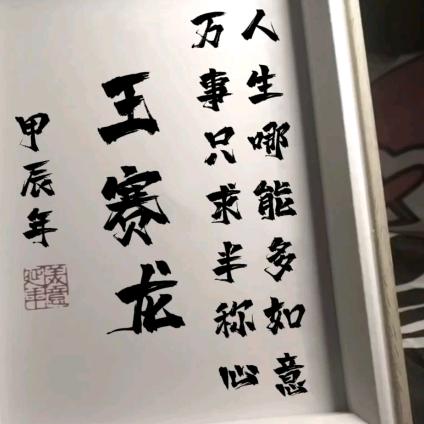 人生哪能多如意
万事只求半称心
王赛龙
甲辰年